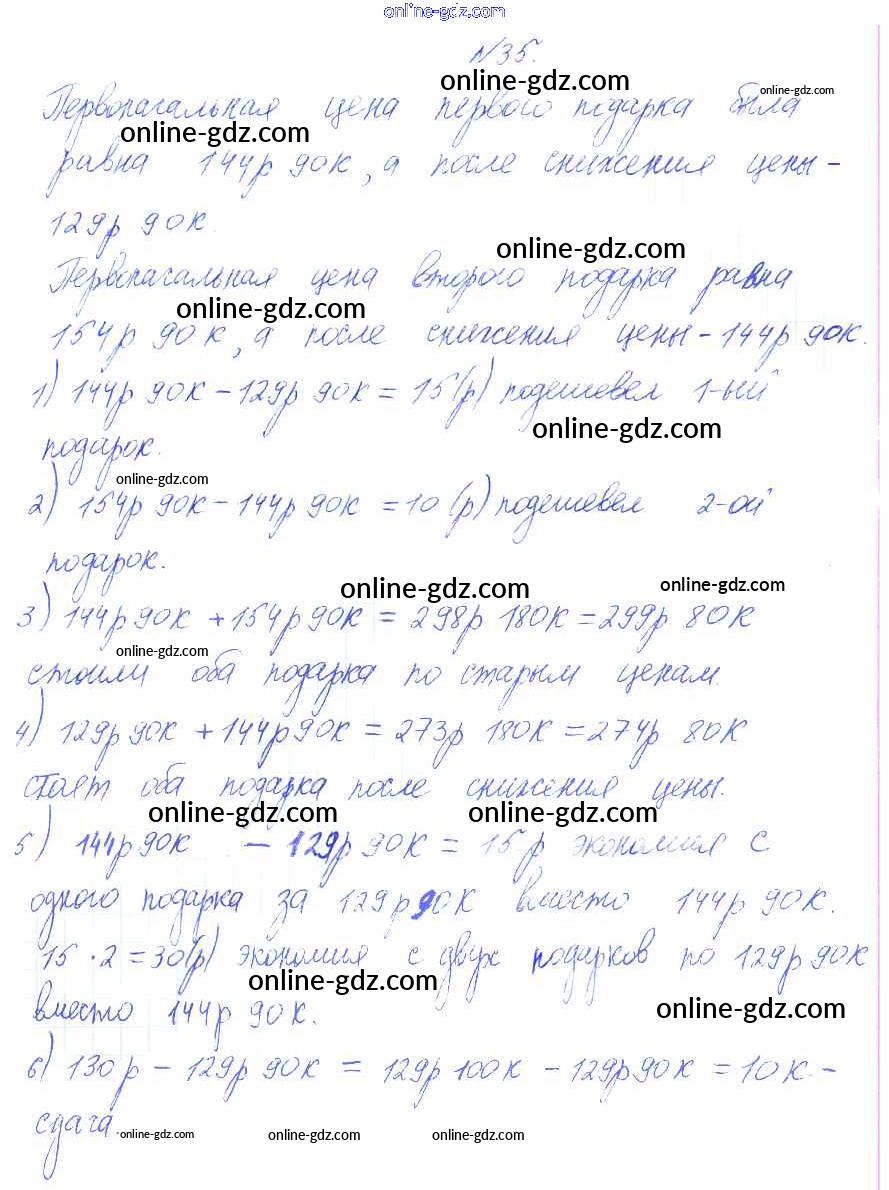 online-gdz.com
№35.
online-gdz.com
online-gdz.com
Первоначальная цена первого подарка была
online-gdz.com
равна 144р 90к, а после снижения цены -
129р 90к.
online-gdz.com
Первоначальная цена второго подарка равна
online-gdz.com
154р 90к, а после снижения цены - 144р 90к.
1) 144р 90к - 129р 90к = 15(р) подешевел 1-ый
online-gdz.com
подарок.
online-gdz.com
2) 154р 90к - 144р 90к = 10 (р) подешевел 2-ой
подарок.
online-gdz.com
online-gdz.com
3) 144р 90к + 154р 90к = 298р 180к = 299р 80к
online-gdz.com
стоили оба подарка по старым ценам.
4) 129р 90к + 144р 90к = 273р 180к = 274р 80к
стоят оба подарка после снижения цены.
online-gdz.com
online-gdz.com
5) 144р 90к - 129р 90к = 15р экономия с
одного подарка за 129р 90к вместо 144р 90к.
15 · 2 = 30(р) экономия с двух подарков по 129р 90к
online-gdz.com
вместо 144р 90к.
online-gdz.com
6) 130р - 129р 90к = 129р 100к - 129р 90к = 10к -
сдача.
online-gdz.com
online-gdz.com
online-gdz.com